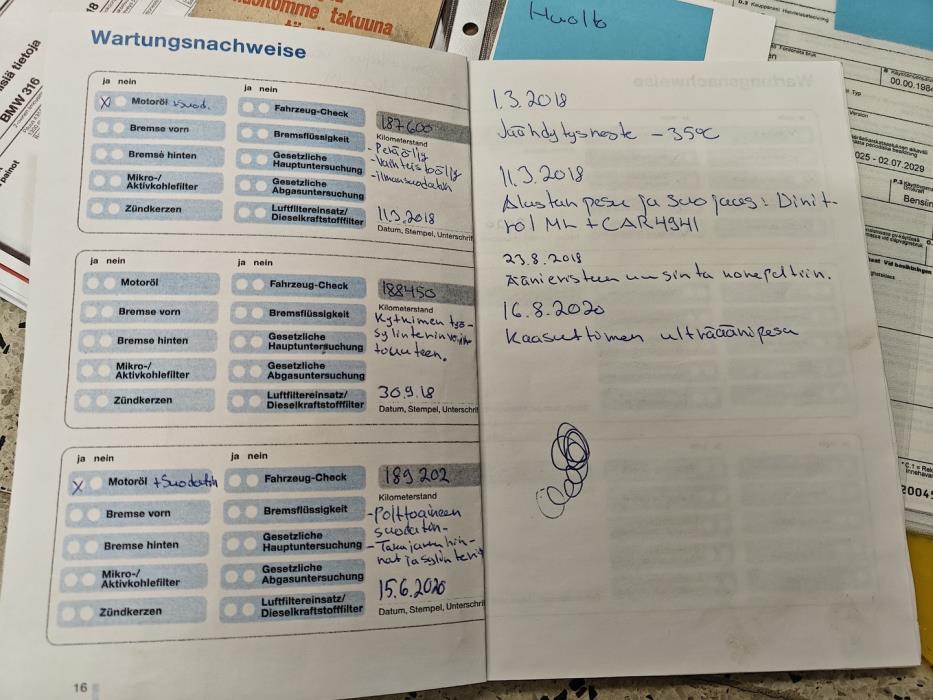 uoltomme takuuna
Huolto
siä tietoja
BMW 316
painot
00.00.1984
Typ
Version
025 - 02.07.2029
Bensiin
Wartungsnachweise
ja nein
ja nein
x Motoröl +suod.
Bremse vorn
Bremse hinten
Mikro-/
Aktivkohlefilter
Zündkerzen
Fahrzeug-Check
Bremsflüssigkeit
Gesetzliche
Hauptuntersuchung
Gesetzliche
Abgasuntersuchung
Luftfiltereinsatz/
Dieselkraftstofffilter
187600
Kilometerstand
- Peräöljy
- Vaihteistoöljy
- ilmansuodatin
11.3.2018
Datum, Stempel, Unterschrif
ja nein
ja nein
Motoröl
Bremse vorn
Bremse hinten
Mikro-/
Aktivkohlefilter
Zündkerzen
Fahrzeug-Check
Bremsflüssigkeit
Gesetzliche
Hauptuntersuchung
Gesetzliche
Abgasuntersuchung
Luftfiltereinsatz/
Dieselkraftstofffilter
188450
Kilometerstand
Kytkimen työ-
sylinterin
30.9.18
Datum, Stempel, Unterschrif
ja nein
ja nein
x Motoröl + Suodatin
Bremse vorn
Bremse hinten
Mikro-/
Aktivkohlefilter
Zündkerzen
Fahrzeug-Check
Bremsflüssigkeit
Gesetzliche
Hauptuntersuchung
Gesetzliche
Abgasuntersuchung
Luftfiltereinsatz/
Dieselkraftstofffilter
189202
Kilometerstand
- Polttoaineen
suodatin
- Takajarruhih-
nat ja sylinterit
15.6.2020
Datum, Stempel, Unterschrif
16
1.3.2018
Jäähdytysneste -35°C
11.3.2018
Alustan pesu ja suojaus: Dinit-
rol ML + CAR4941
23.8.2018
Äänieristeen uusinta konepeltiin.
16.8.2020
Kaasuttimen ultraäänipesu